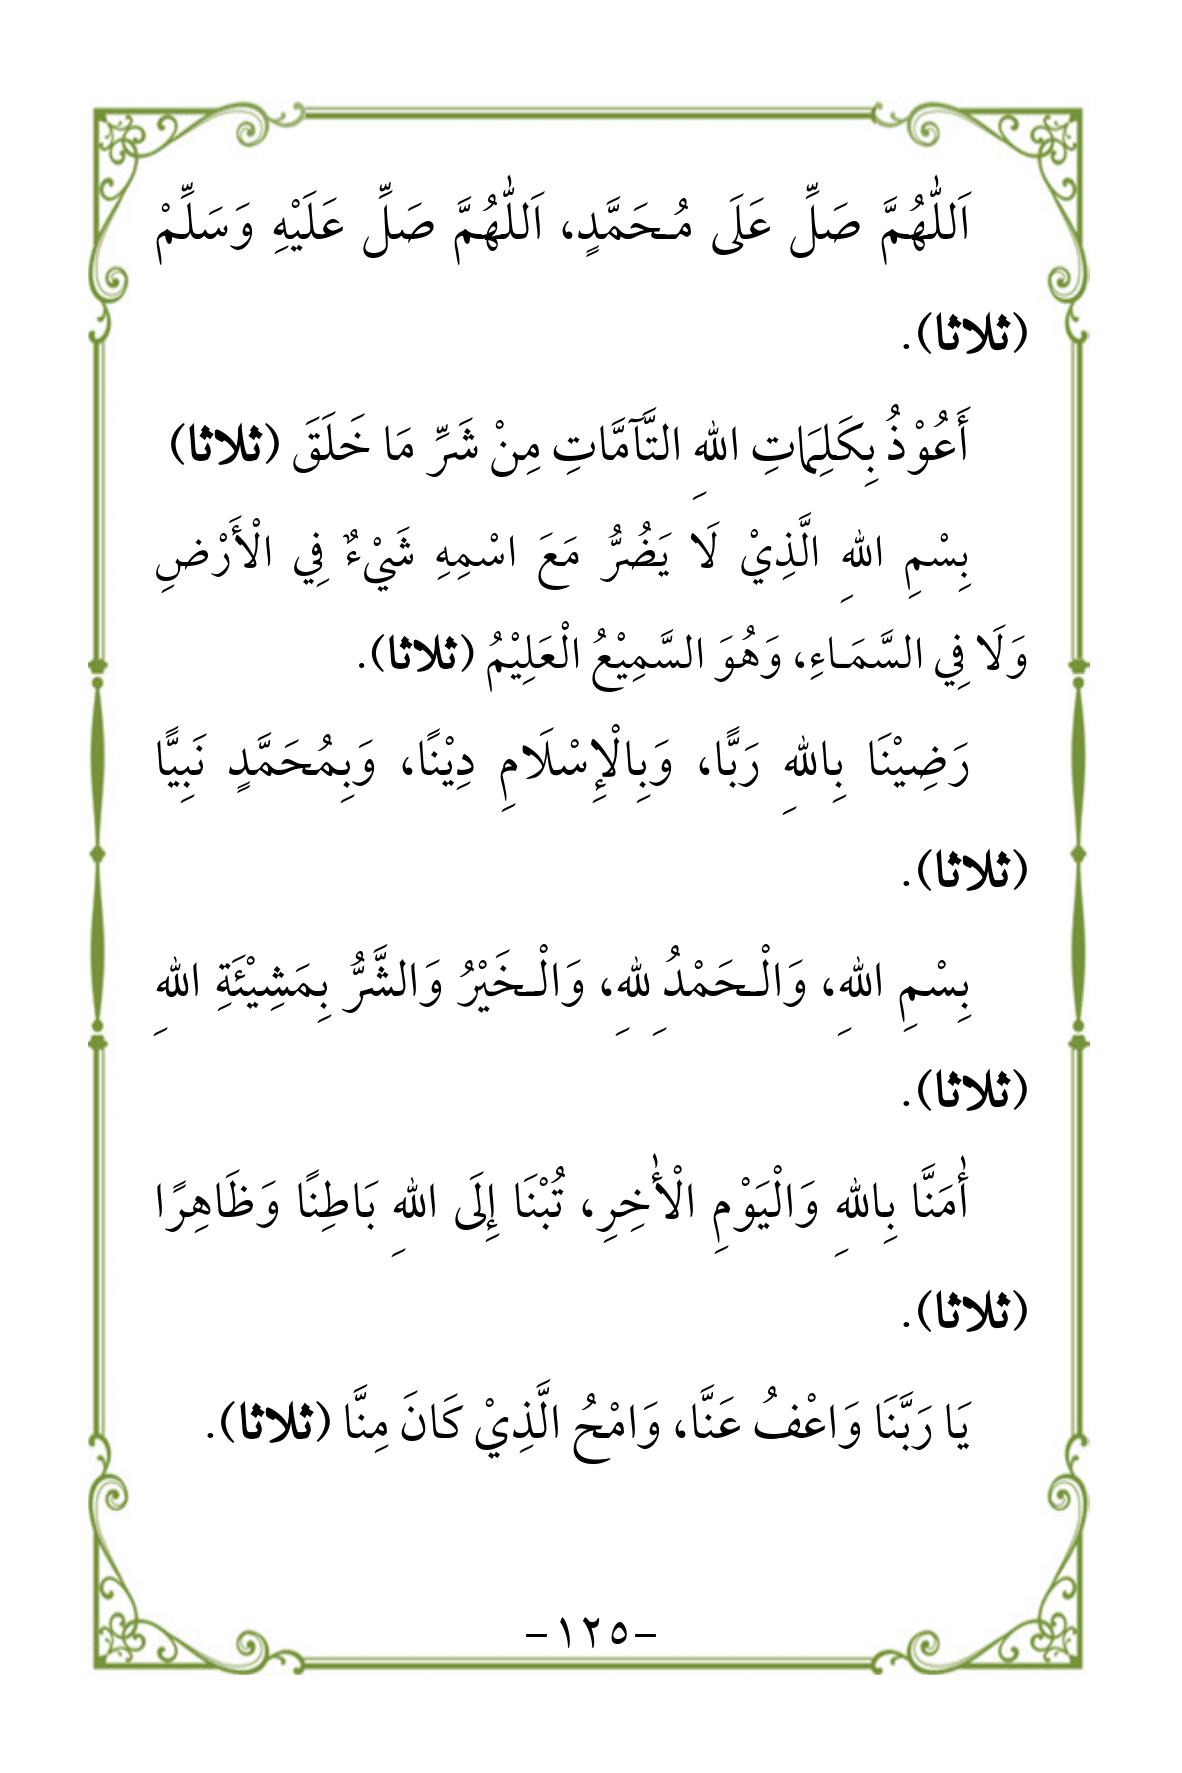 اَللّٰهُمَّ صَلِّ عَلَى مُـحَمَّدٍ، اَللّٰهُمَّ صَلِّ عَلَيْهِ وَسَلِّمْ
(ثلاثا).
أَعُوْذُ بِكَلِمَاتِ اللهِ التَّآمَّاتِ مِنْ شَرِّ مَا خَلَقَ (ثلاثا)
بِسْمِ اللهِ الَّذِيْ لَا يَضُرُّ مَعَ اسْمِهِ شَيْءٌ فِي الْأَرْضِ
وَلَا فِي السَّمَـاءِ، وَهُوَ السَّمِيْعُ الْعَلِيْمُ (ثلاثا).
رَضِيْنَا بِاللهِ رَبًّا، وَبِالْإِسْلَامِ دِيْنًا، وَبِمُحَمَّدٍ نَبِيًّا
(ثلاثا).
بِسْمِ اللهِ، وَالْـحَمْدُ لِلهِ، وَالْـخَيْرُ وَالشَّرُّ بِمَشِيْئَةِ اللهِ
(ثلاثا).
أٰمَنَّا بِاللهِ وَالْيَوْمِ الْأٰخِرِ، تُبْنَا إِلَى اللهِ بَاطِنًا وَظَاهِرًا
(ثلاثا).
يَا رَبَّنَا وَاعْفُ عَنَّا، وَامْحُ الَّذِيْ كَانَ مِنَّا (ثلاثا).
-١٢٥-